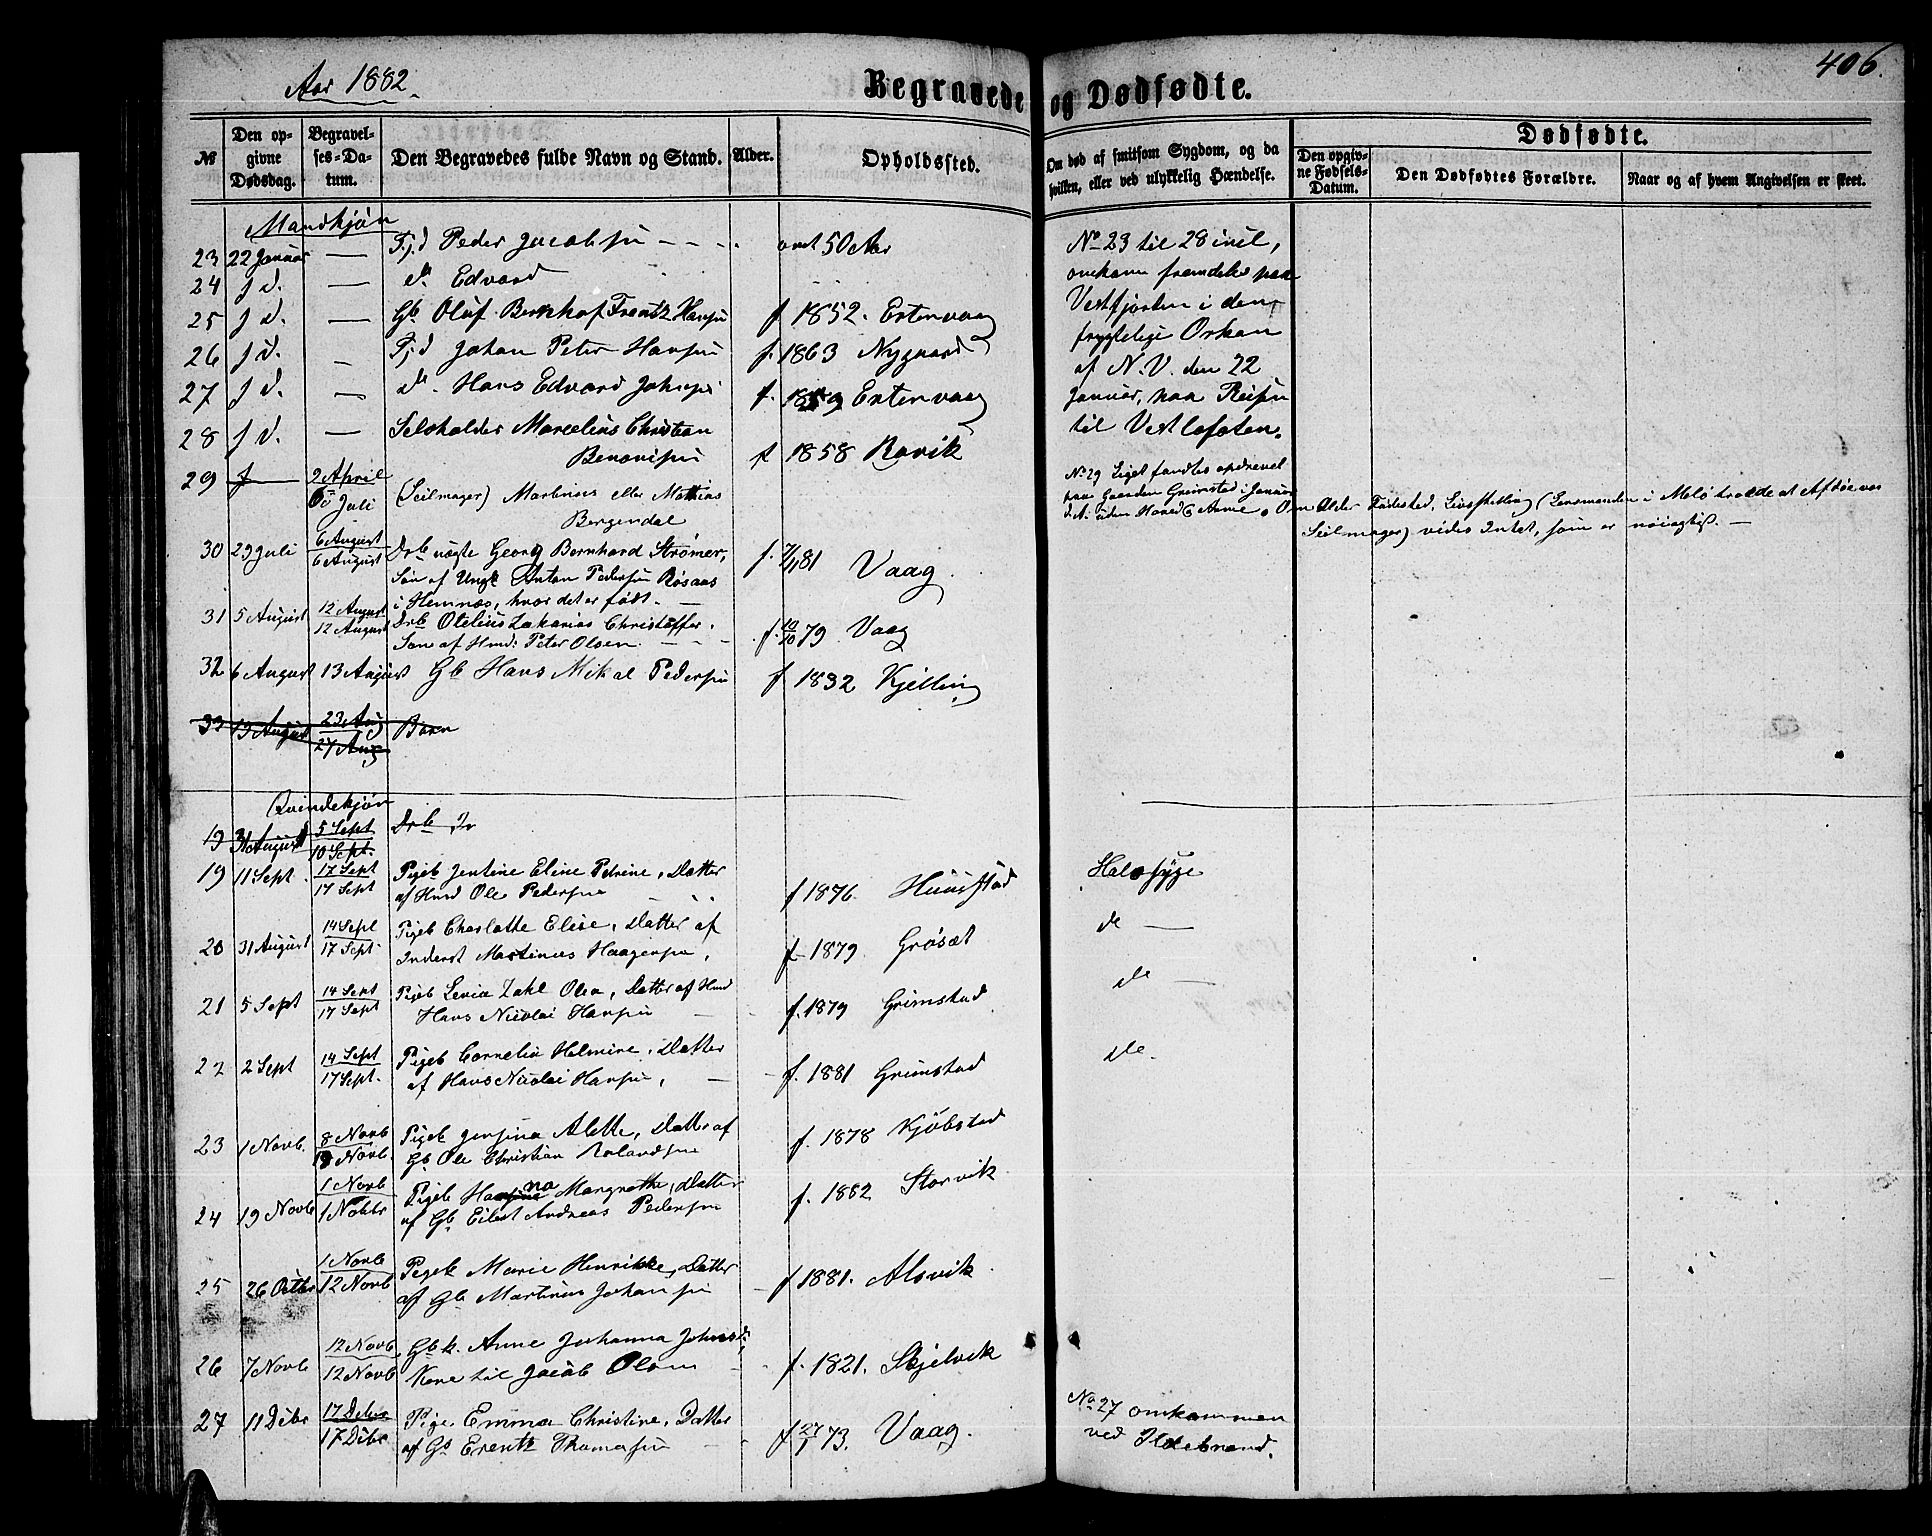 Aar 1882.
Begravede og Dødfødte.
406.
№
Den opgivne Dødsdag.
Begravelses-Datum.
Den Begravedes fulde Navn og Stand.
Alder.
Opholdssted.
Om død af smitsom Sygdom, og da hvilken, eller ved ulykkelig Hændelse.
Dødfødte.
Den opgivne Fødsels-Datum.
Den Dødfødtes Forældre.
Naar og af hvem Angivelsen er skeet.
Mandkjøn
23 22 Januar — Fjd Peder Jacobsen - - - . omt 50 Aar
24 J d. — do. Edvard
25 J d. — Gb Oluf Bernhof Frentz Hansen f 1852. Estenvaag
26 J d. — Fjd Johan Peter Hansen f. 1863 Nygaard
27 J d. — do. Hans Edvard Johnsen f. 1859 Estenvaag
28 J d. — Selvholder Marcelius Christian
Benonisen f 1858 Ravik
No 23 til 28 incl,
omkom fremdeles paa
Vestfjorten i den
frygtelige Orkan
af N.V. den 22
Januar, paa Reisen
til Vestlofoten.
29 2 April
Juli (Seilmager) Martinus eller Mathias
Bergendal
No 29 Liget fandtes opdrevet
paa Gaarden Grimstad i Januar
d.A. uden Hoved & Arme. Om Alder Fødested, Livsstilling (Lensmanden i Melø troede at Afdøe var
Seilmager) vides Intet, som er nøiagtigt. —
30 29 Juli 6 August
6 August Drb uægte Georg Bernhard Strømer,
Søn af Ungk Anton Pedersen Røsaas
i Hemnæs, hvor det er født. — f. 7/11 81 Vaag.
31 5 August 12 August
12 August Drb Otelius Zakarias Christoffer.
Søn af Hmd: Peter Olsen. f. 79 Vaag
32 6 August 13 August Gb Hans Mikal Pedersen f 1832 Kjelling
33 13 August 23 Aug
27 Aug Barn
Qvindekjøn
19 31 August 5 Sept
10 Sept. Drb
19 11 Sept. 17 Sept
17 Sept Pigeb Jentine Eline Petrine, Datter
af Hmd Ole Pedersen f 1876. Huusstad Halssyge
20 31 August 14 Sept
17 Sept. Pigeb Charlotte Elise, Datter af
Inderst Martinus Haagensen, f 1879. Grøsæt do —
21 5 Sept 14 Sept
17 Sept Pigeb Levia Zahl Olea, Datter af Hmd
Hans Nicolai Hansen — f. 1879 Grimstad do —
22 2 Sept 14 Sept
17 Sept. Pigeb Cornelia Halmine, Datter
af Hans Nicolai Hansen, — f. 1881 Grimstad do.
23 1 Novb. 8 Novb
Novb. Pigeb Jensina Alette, Datter af
Gb Ole Christian Rolandsen f. 1878 Kjøbstad
24 19 Novb 1 Novb
1 Novbr Pigeb Hanna Margrethe, Datter
af Gb Eilert Andreas Pedersen f. 1882 Storvik
25 26 Octbr 1 Novb
12 Novb Pigeb Marie Henrikke, Datter
af Gb Martinus Johansen f 1881. Alsvik
26 7 Novb 12 Novb
12 Novb Gbk. Anne Johanna Johnsd:
Kone til Jacob Olsen f. 1821. Skjelvik
27 11 Dcbr 17 Dcbr
17 Dcbr Pige Emma Christine, Datter
af Gb Erentz Thomassen — f 27/1 73. Vaag. No 27 omkommen
ved Ildebrand.